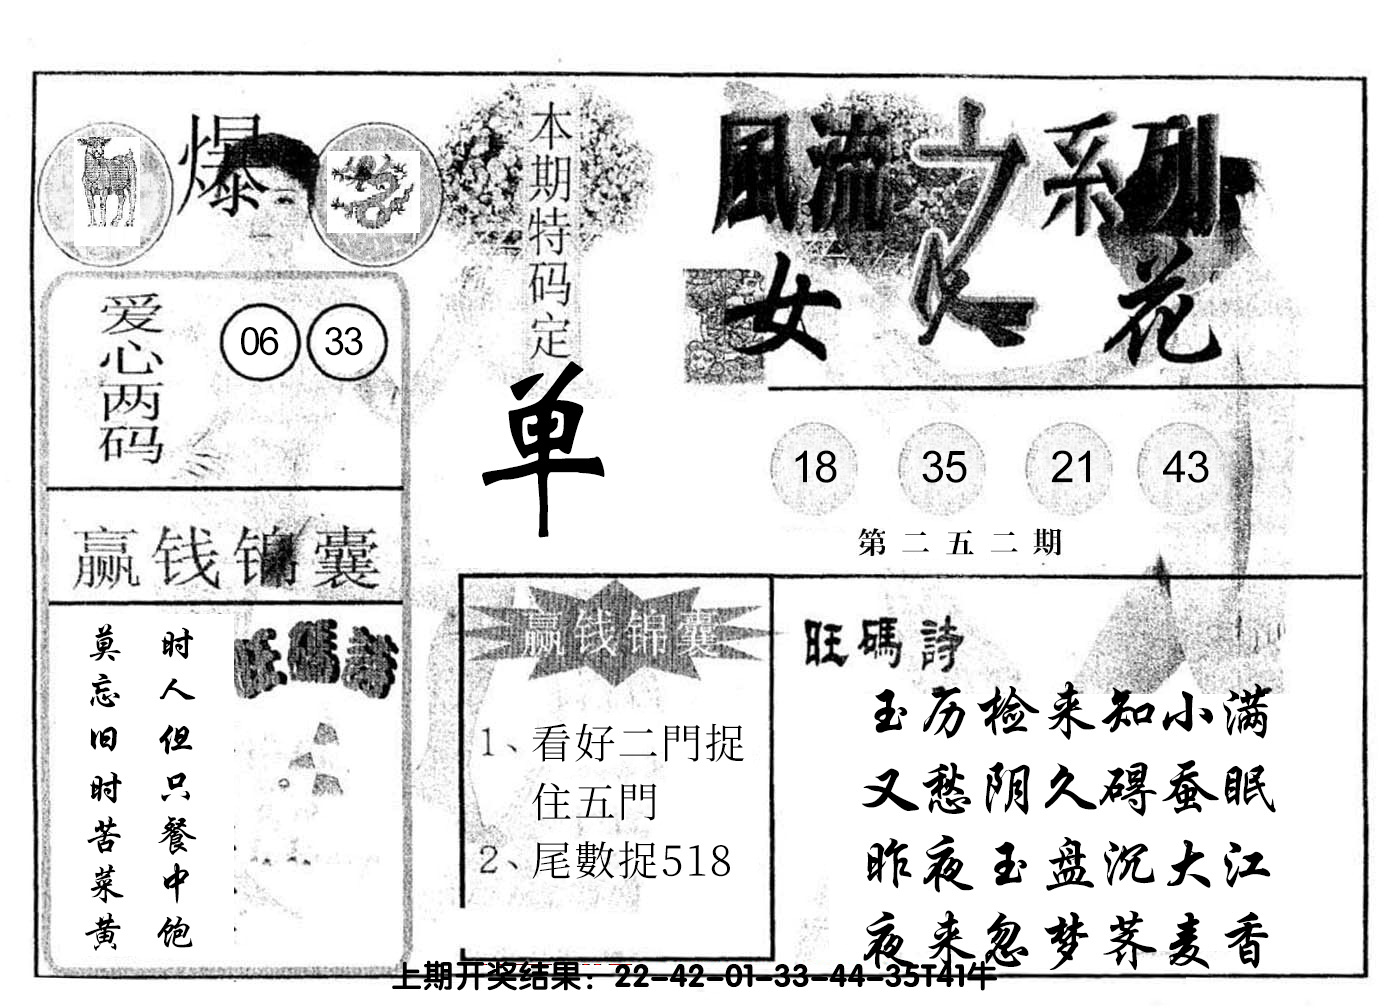 爆
本期特码定
单
風流之系列
女人花
爱心两码
06 33
18 35 21 43
第二五二期
赢钱锦囊
时人但只餐中饱
莫忘旧时苦菜黄
旺碼詩
赢钱锦囊
1、看好二門捉
住五門
2、尾數捉518
旺碼詩
玉历检来知小满
又愁阴久碍蚕眠
昨夜玉盘沉大江
夜来忽梦荞麦香
上期开奖结果：22-42-01-33-44-35T41牛